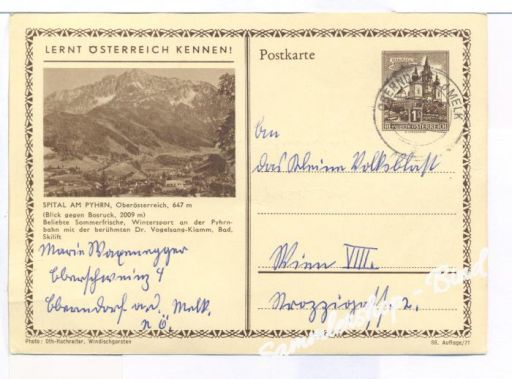 LERNT ÖSTERREICH KENNEN!
SPITAL AM PYHRN, Oberösterreich, 647 m
(Blick gegen Bosruck, 2009 m)
Beliebte Sommerfrische, Wintersport an der Pyhrn-
bahn mit der berühmten Dr. Vogelsang-Klamm, Bad,
Skilift
Marie
4
Oberndorf a.d. Melk.
N.Ö.
Photo: Oth-Hochreiter, Windischgarsten
Postkarte
REPUBLIK ÖSTERREICH
OBERNDORF MELK
An
das Kleine Volksblatt
Wien VIII.
Strozzigasse 2.
Sammlershop - Bindl
86. Auflage/71